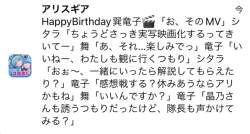 アリスギア
今
HappyBirthday巽竜子🎬「お、そのMV」シ
タラ「ちょうどさっき実写映画化するってき
いてー」舞「あ、それ…楽しみでっ」竜子「い
いねー、わたしも観に行くつもり」シタラ
「おぉ〜、一緒にいったら解説してもらえた
り？」竜子「感想戦する？休みあうならアリ
かもね」舞「いいんですか？」竜子「晶乃さ
んも誘うつもりだったけど、隊長も声かけて
みする？」